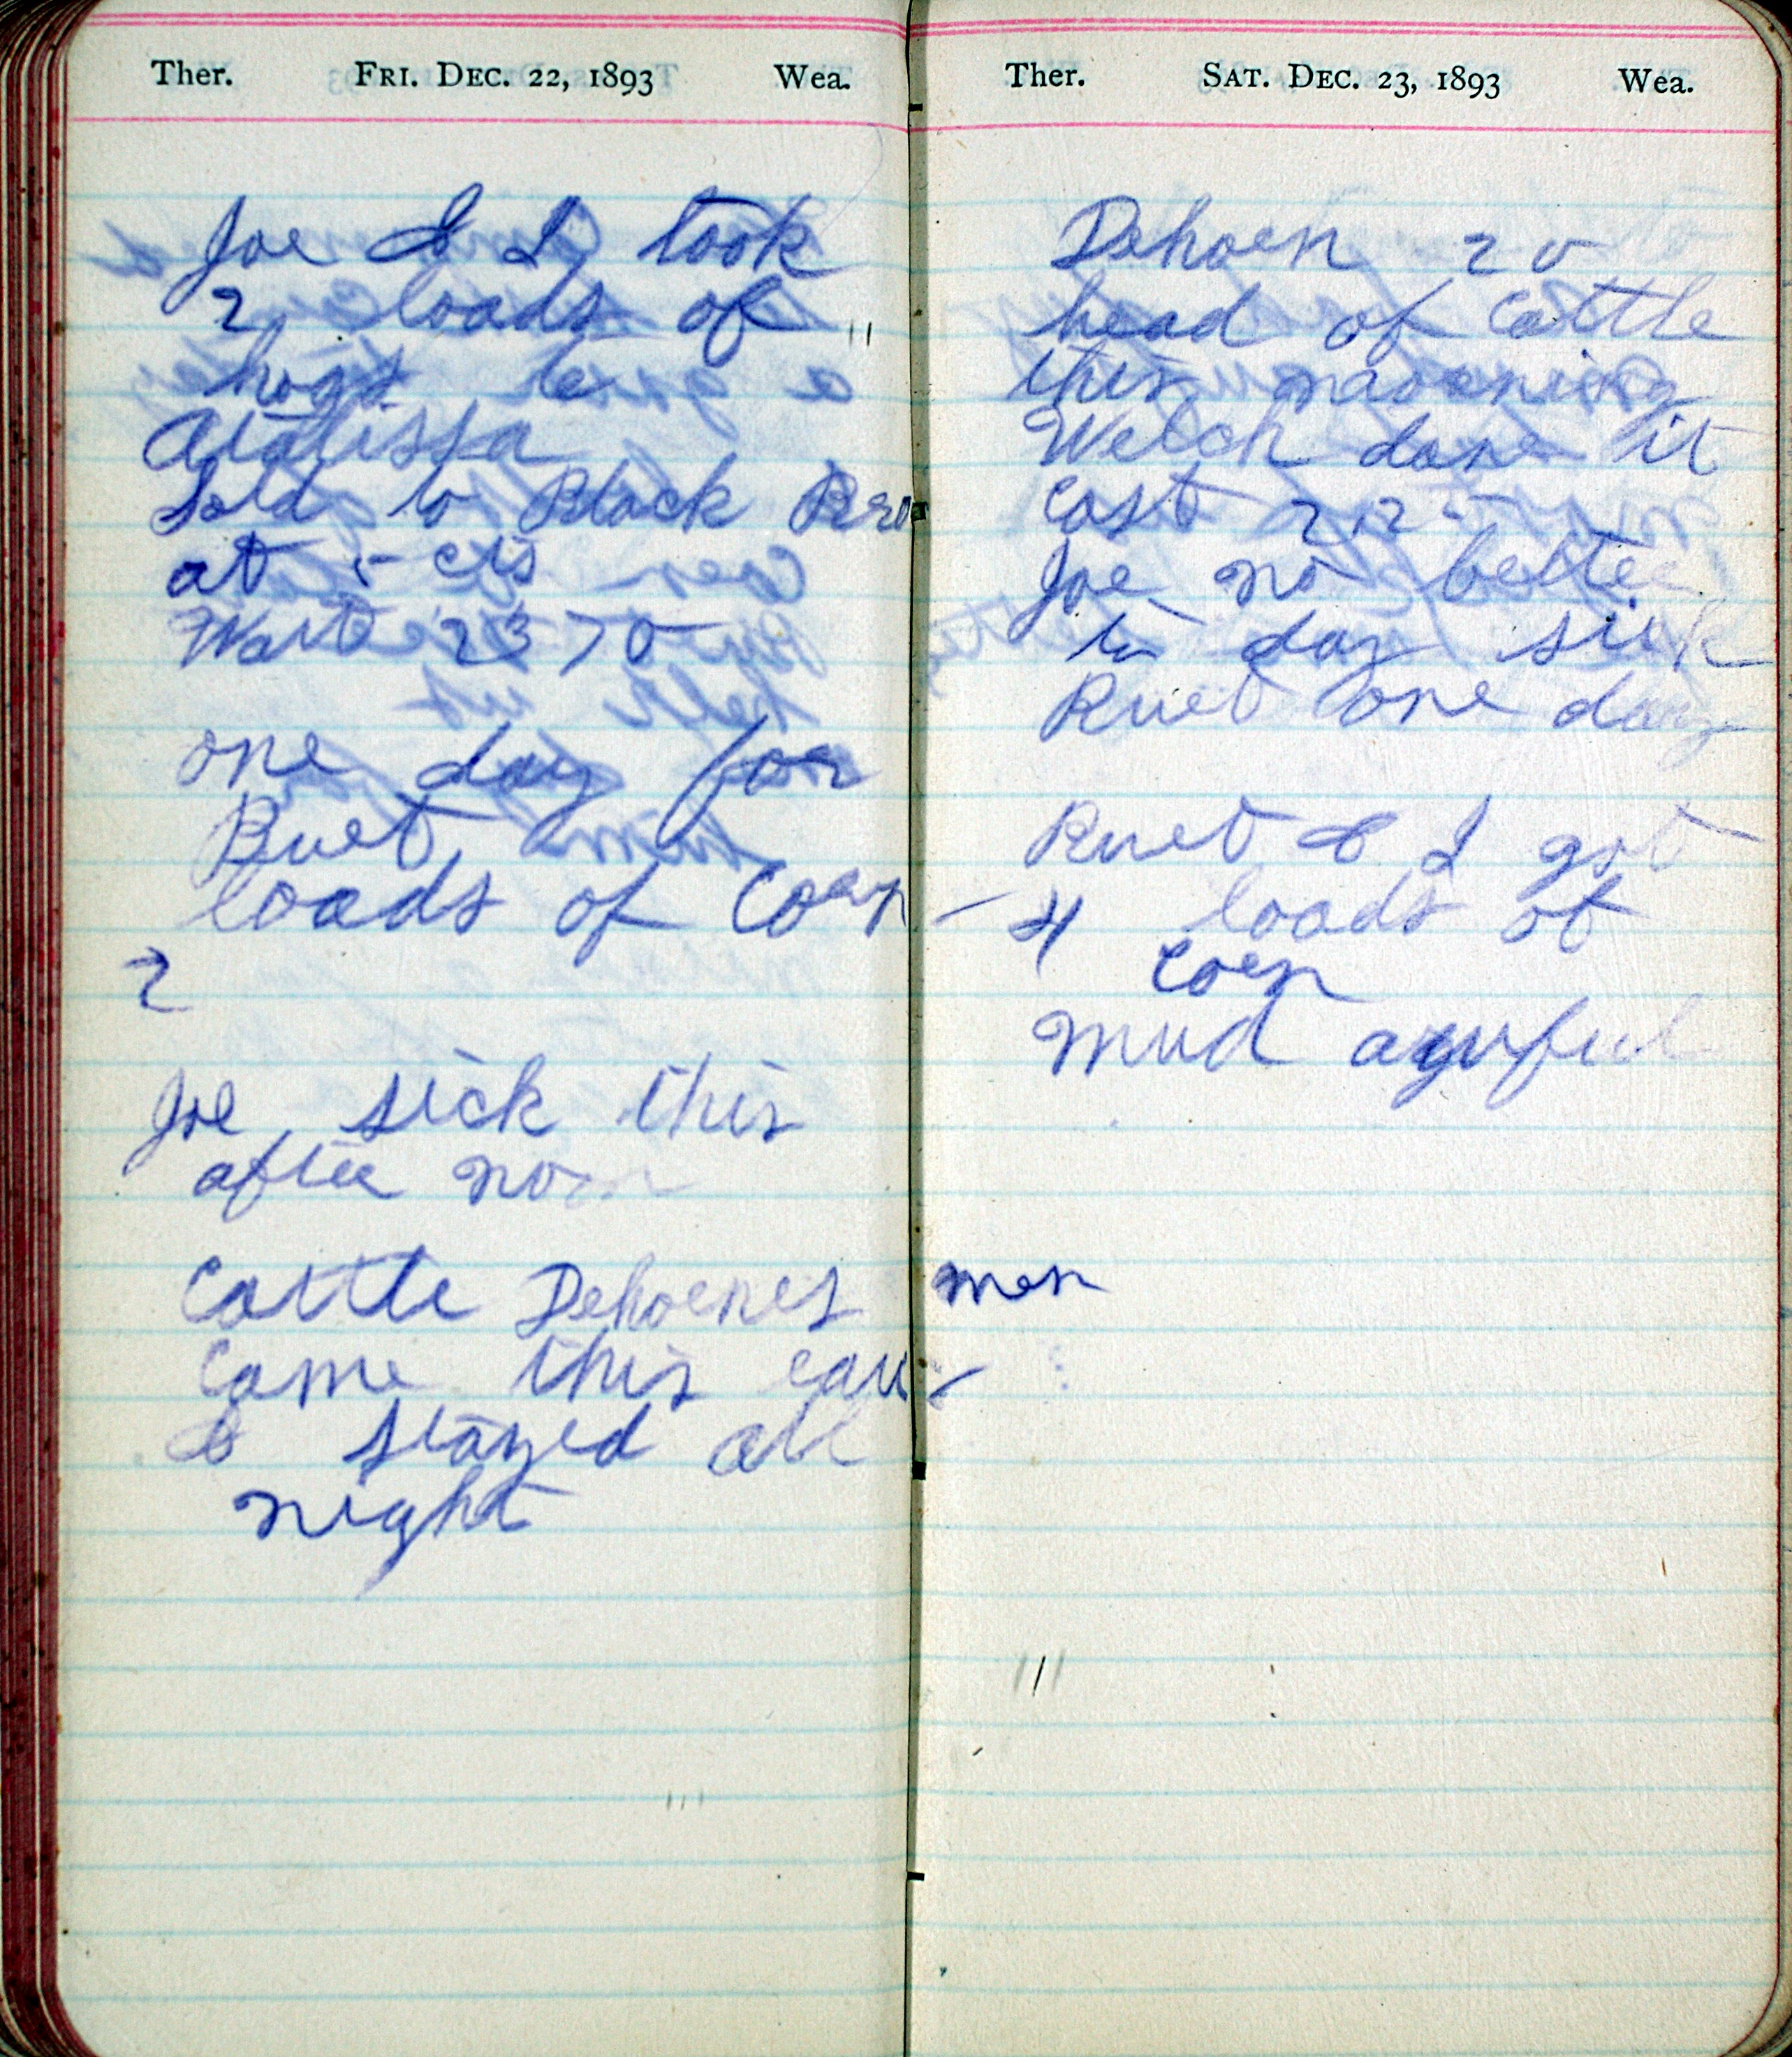 Ther. FRI. DEC. 22, 1893 Wea.
Joe & I took
2 loads of
hogs to
Atalissa
Sold to Black Bro
at 5 cts
Wait 2370
one day for
Ruet
loads of Corn
2
Joe sick this
after noon
Cattle Dehorners men
Came this eav
& stayed all
night
Ther. SAT. DEC. 23, 1893 Wea.
Dehorn 20
head of Cattle
this morning
Welch done it
Cost
Joe no better
to day sick
Ruet one day
Ruet & I got
4 loads of
Corn
Mud awful